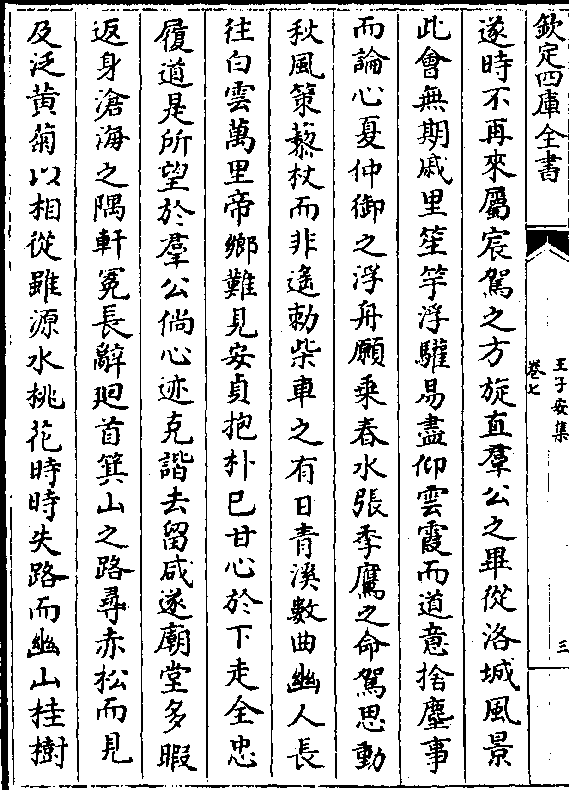 欽定四庫全書
王子安集
卷七
三
遂時不再來屬宸駕之方旋直羣公之畢從洛城風景
此會無期戚里笙竽浮驩易盡仰雲霞而道意捨塵事
而論心夏仲御之浮舟願乗春水張季鷹之命駕思動
秋風策藜杖而非遙勅柴車之有日青溪數曲幽人長
往白雲萬里帝鄉難見安貞抱朴已甘心於下走全忠
履道是所望於羣公倘心迹克諧去留咸遂廟堂多暇
返身滄海之隅軒冕長辭廻首箕山之路尋赤松而見
及泛黄菊以相從雖源水桃花時時失路而幽山桂樹